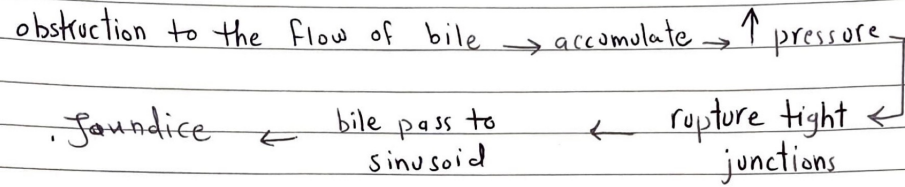 obstruction to the flow of bile → accumulate → ↑ pressure
↵ rupture tight junctions ← bile pass to sinusoid ← Jaundice.